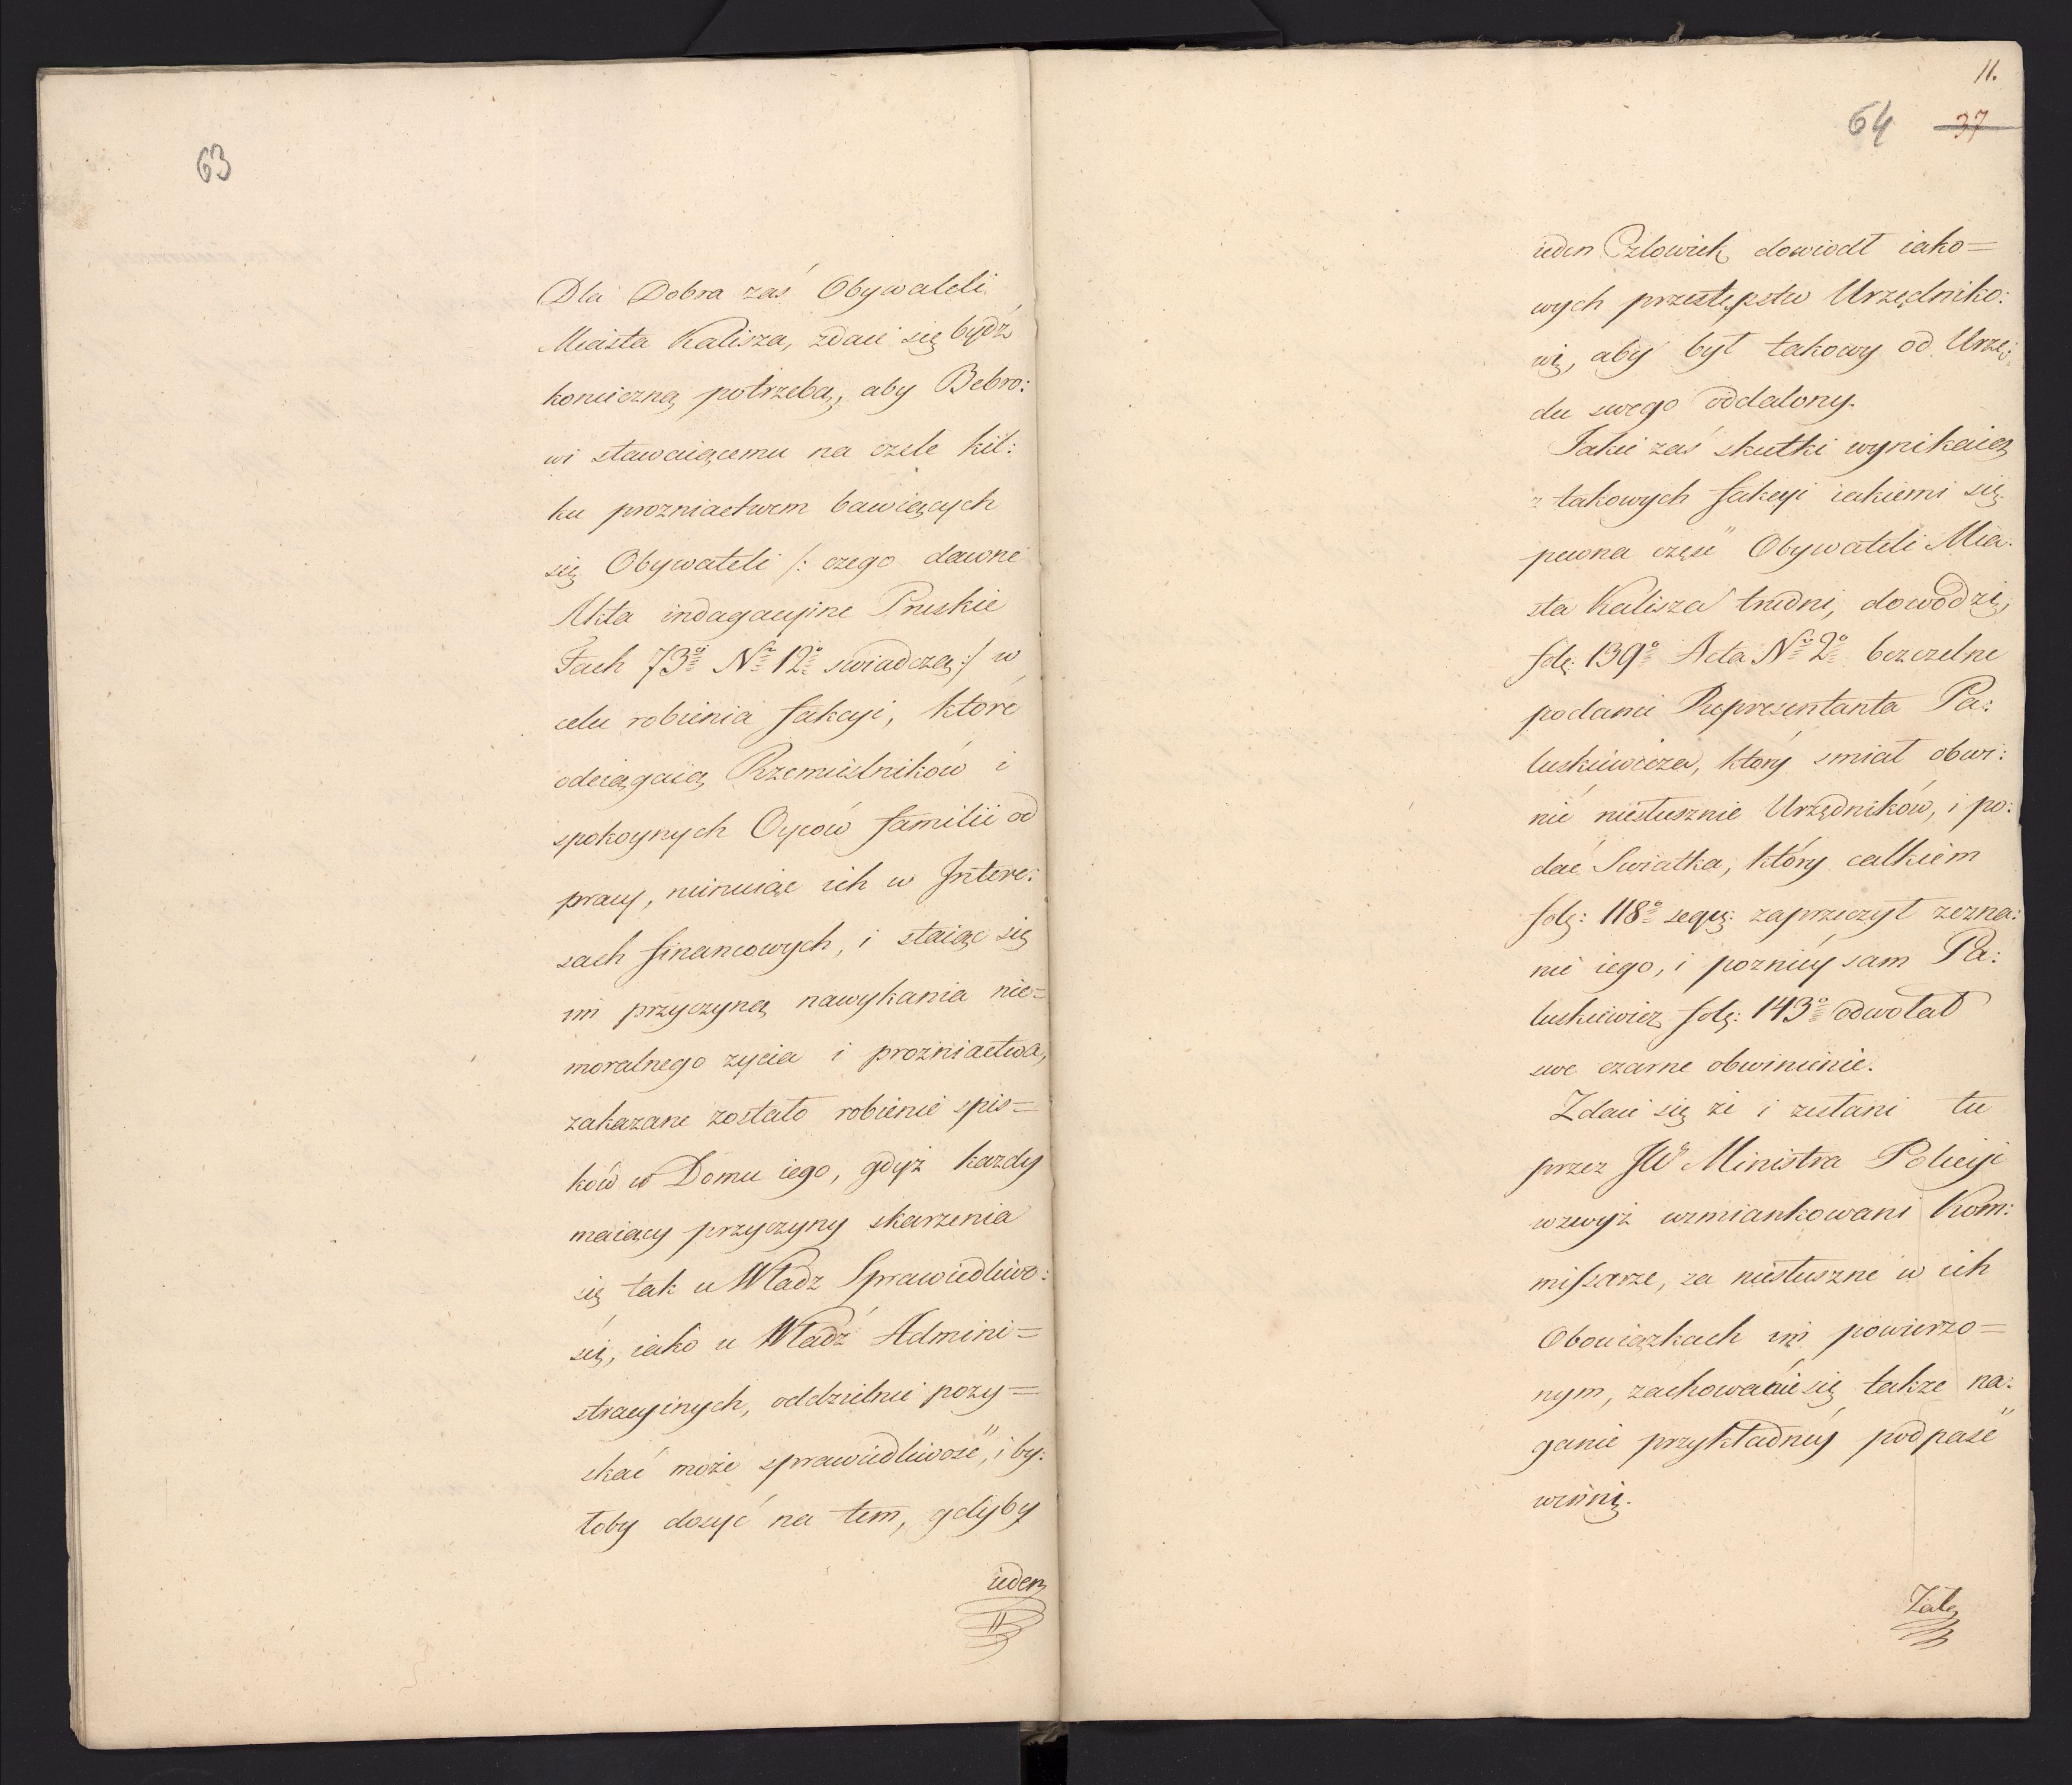 63
Dla Dobra zaś Obywateli
Miasta Kalisza, zdaie się bydź
konieczną potrzebą, aby Bebro:
wi stawaiącemu na czele kil:
ku prozniactwem bawiących
się Obywateli /: czego dawne
Akta indagacyjne Pruskie
Fach 73º Nº 12º swiadczą :/ w
celu robienia fakcyi, które
odciągaią Rzemieslników i
spokoynych Oyców familii od
pracy, ruinuiąc ich w Intere:
sach financowych, i staiąc się
im przyczyną nawykania nie=
moralnego zycia i prozniactwa,
zakazane zostało robienie spis=
ków w Domu iego, gdyż kazdy
maiący przyczyny skarzenia
się tak u Władz Sprawiedliwo:
ści, iako u Władź Admini=
stracyinych, oddzielnie pozy=
skać może sprawiedliwość, i by:
łoby dosyć na tem, gdyby
ieden
11.
64 37
ieden Człowiek dowiodł iako=
wych przestępstw Urzędniko:
wi, aby był takowy od Urzę:
du swego oddalony.
Jakie zaś skutki wynikaią
z takowych fakcyi iakiemi się
pewna część Obywateli Mia:
sta Kalisza trudni, dowodzi,
fol: 139º Acta Nº 2º bezczelne
podanie Reprezentanta Pa:
luskiewicza, który smiał obwi:
nić niesłusznie Urzędników, i po:
dać Swiatka, który całkiem
fol: 118º seqq: zaprzeczył zezna:
nie iego, i pozniey sam Pa:
luskiewicz fol: 143º odwołał
swe czarne obwinienie.
Zdaie się że i zesłani tu
przez JW Ministra Policyi
wzwyż wzmiankowani Kom:
missarze, za niesłuszne w ich
Obowiązkach im powierzo=
nym, zachowanie się także na:
ganie przykładney podpaść
winni.